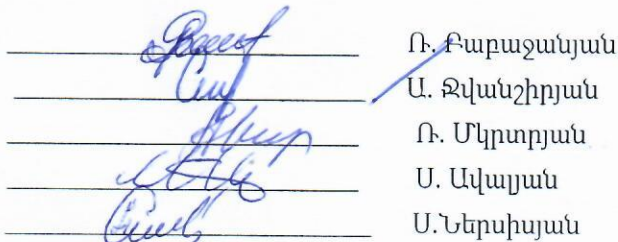 Ռ. Բաբաջանյան
Ա. Ջվանշիրյան
Ռ. Մկրտրյան
Ս. Ավալյան
Ս.Ներսիսյան